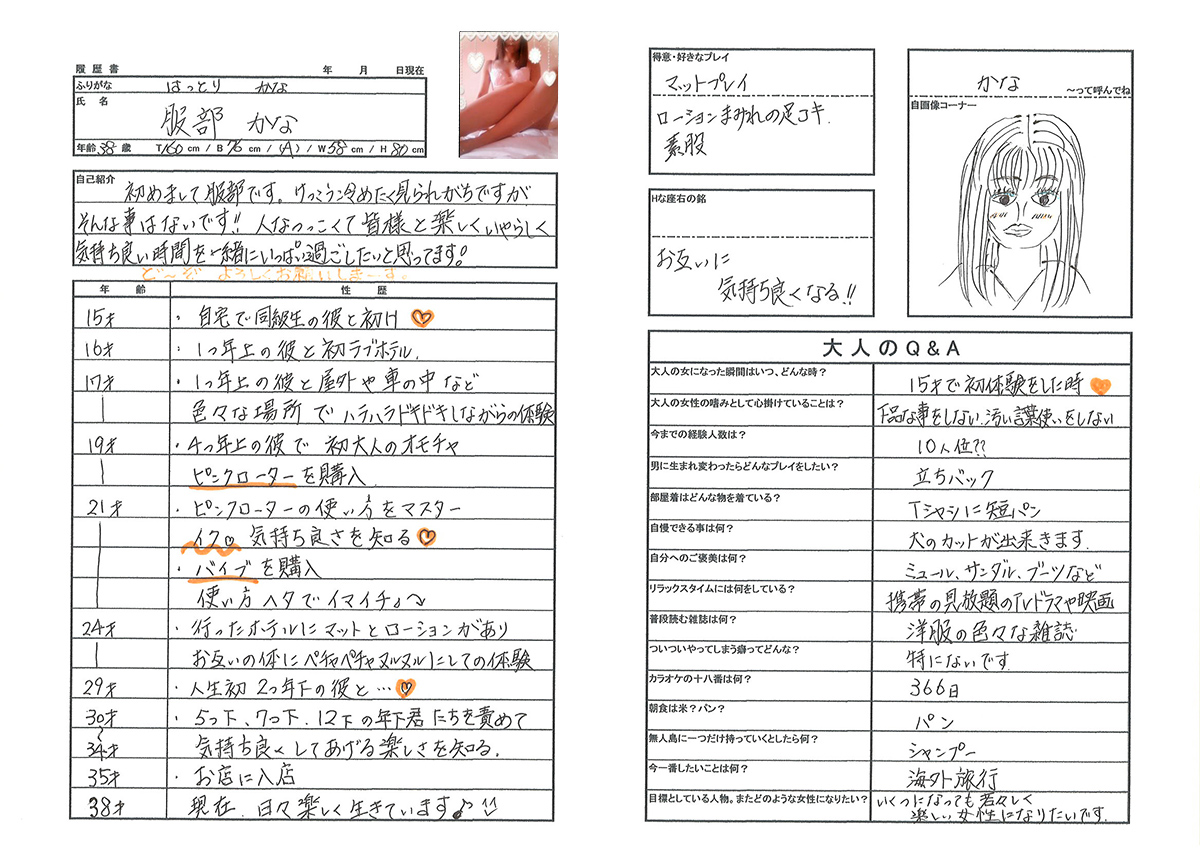 履歴書 年 月 日現在
ふりがな はっとり かな
氏 名
服部 かな
年齢 38 歳 T160cm / B76cm / (A) / W58cm / H80cm
自己紹介
初めまして服部です。けっこう冷めたく見られがちですが
そんな事はないです!! 人なつっこくて皆様と楽しくいやらしく
気持ち良い時間を一緒にいっぱい過ごしたいと思ってます!
年 齢 性 歴
19才 ・4つ年上の彼で 初大人のオモチャ
ピンクローターを購入
21才 ・ピンクローターの使い方をマスター
イク。気持ち良さを知る♡
・バイブを購入
使い方ヘタでイマイチ
24才 ・行ったホテルにマットとローションがあり
お互いの体にペチャペチャヌルヌルにしての体験
29才 ・人生初 2つ年下の彼と…♡
30才 ・5つ下、7つ下、12下の年下君たちを責めて
〜
34才 気持ち良くしてあげる楽しさを知る。
35才 ・お店に入店
38才 現在、日々楽しく生きています♪
得意・好きなプレイ
マットプレイ
ローションまみれの足コキ
素股
Hな座右の銘
お互いに
気持ち良くなる!!
かな
〜って呼んでね
自画像コーナー
大人のQ&A
大人の女になった瞬間はいつ、どんな時?
大人の女性の嗜みとして心掛けていることは? 下品な事をしない、汚い言葉使いをしない
今までの経験人数は? 10人位??
男に生まれ変わったらどんなプレイをしたい? 立ちバック
部屋着はどんな物を着ている? Tシャツに短パン
自慢できる事は何? 犬のカットが出来ます。
自分へのご褒美は何? ミュール、サンダル、ブーツなど
リラックスタイムには何をしている? 携帯の見放題のドラマや映画
普段読む雑誌は何? 洋服の色々な雑誌
ついついやってしまう癖ってどんな? 特にないです
カラオケの十八番は何? 366日
朝食は米?パン? パン
無人島に一つだけ持っていくとしたら何? シャンプー
今一番したいことは何? 海外旅行
目標としている人物。またどのような女性になりたい? いくつになっても若々しく
楽しい女性になりたいです。